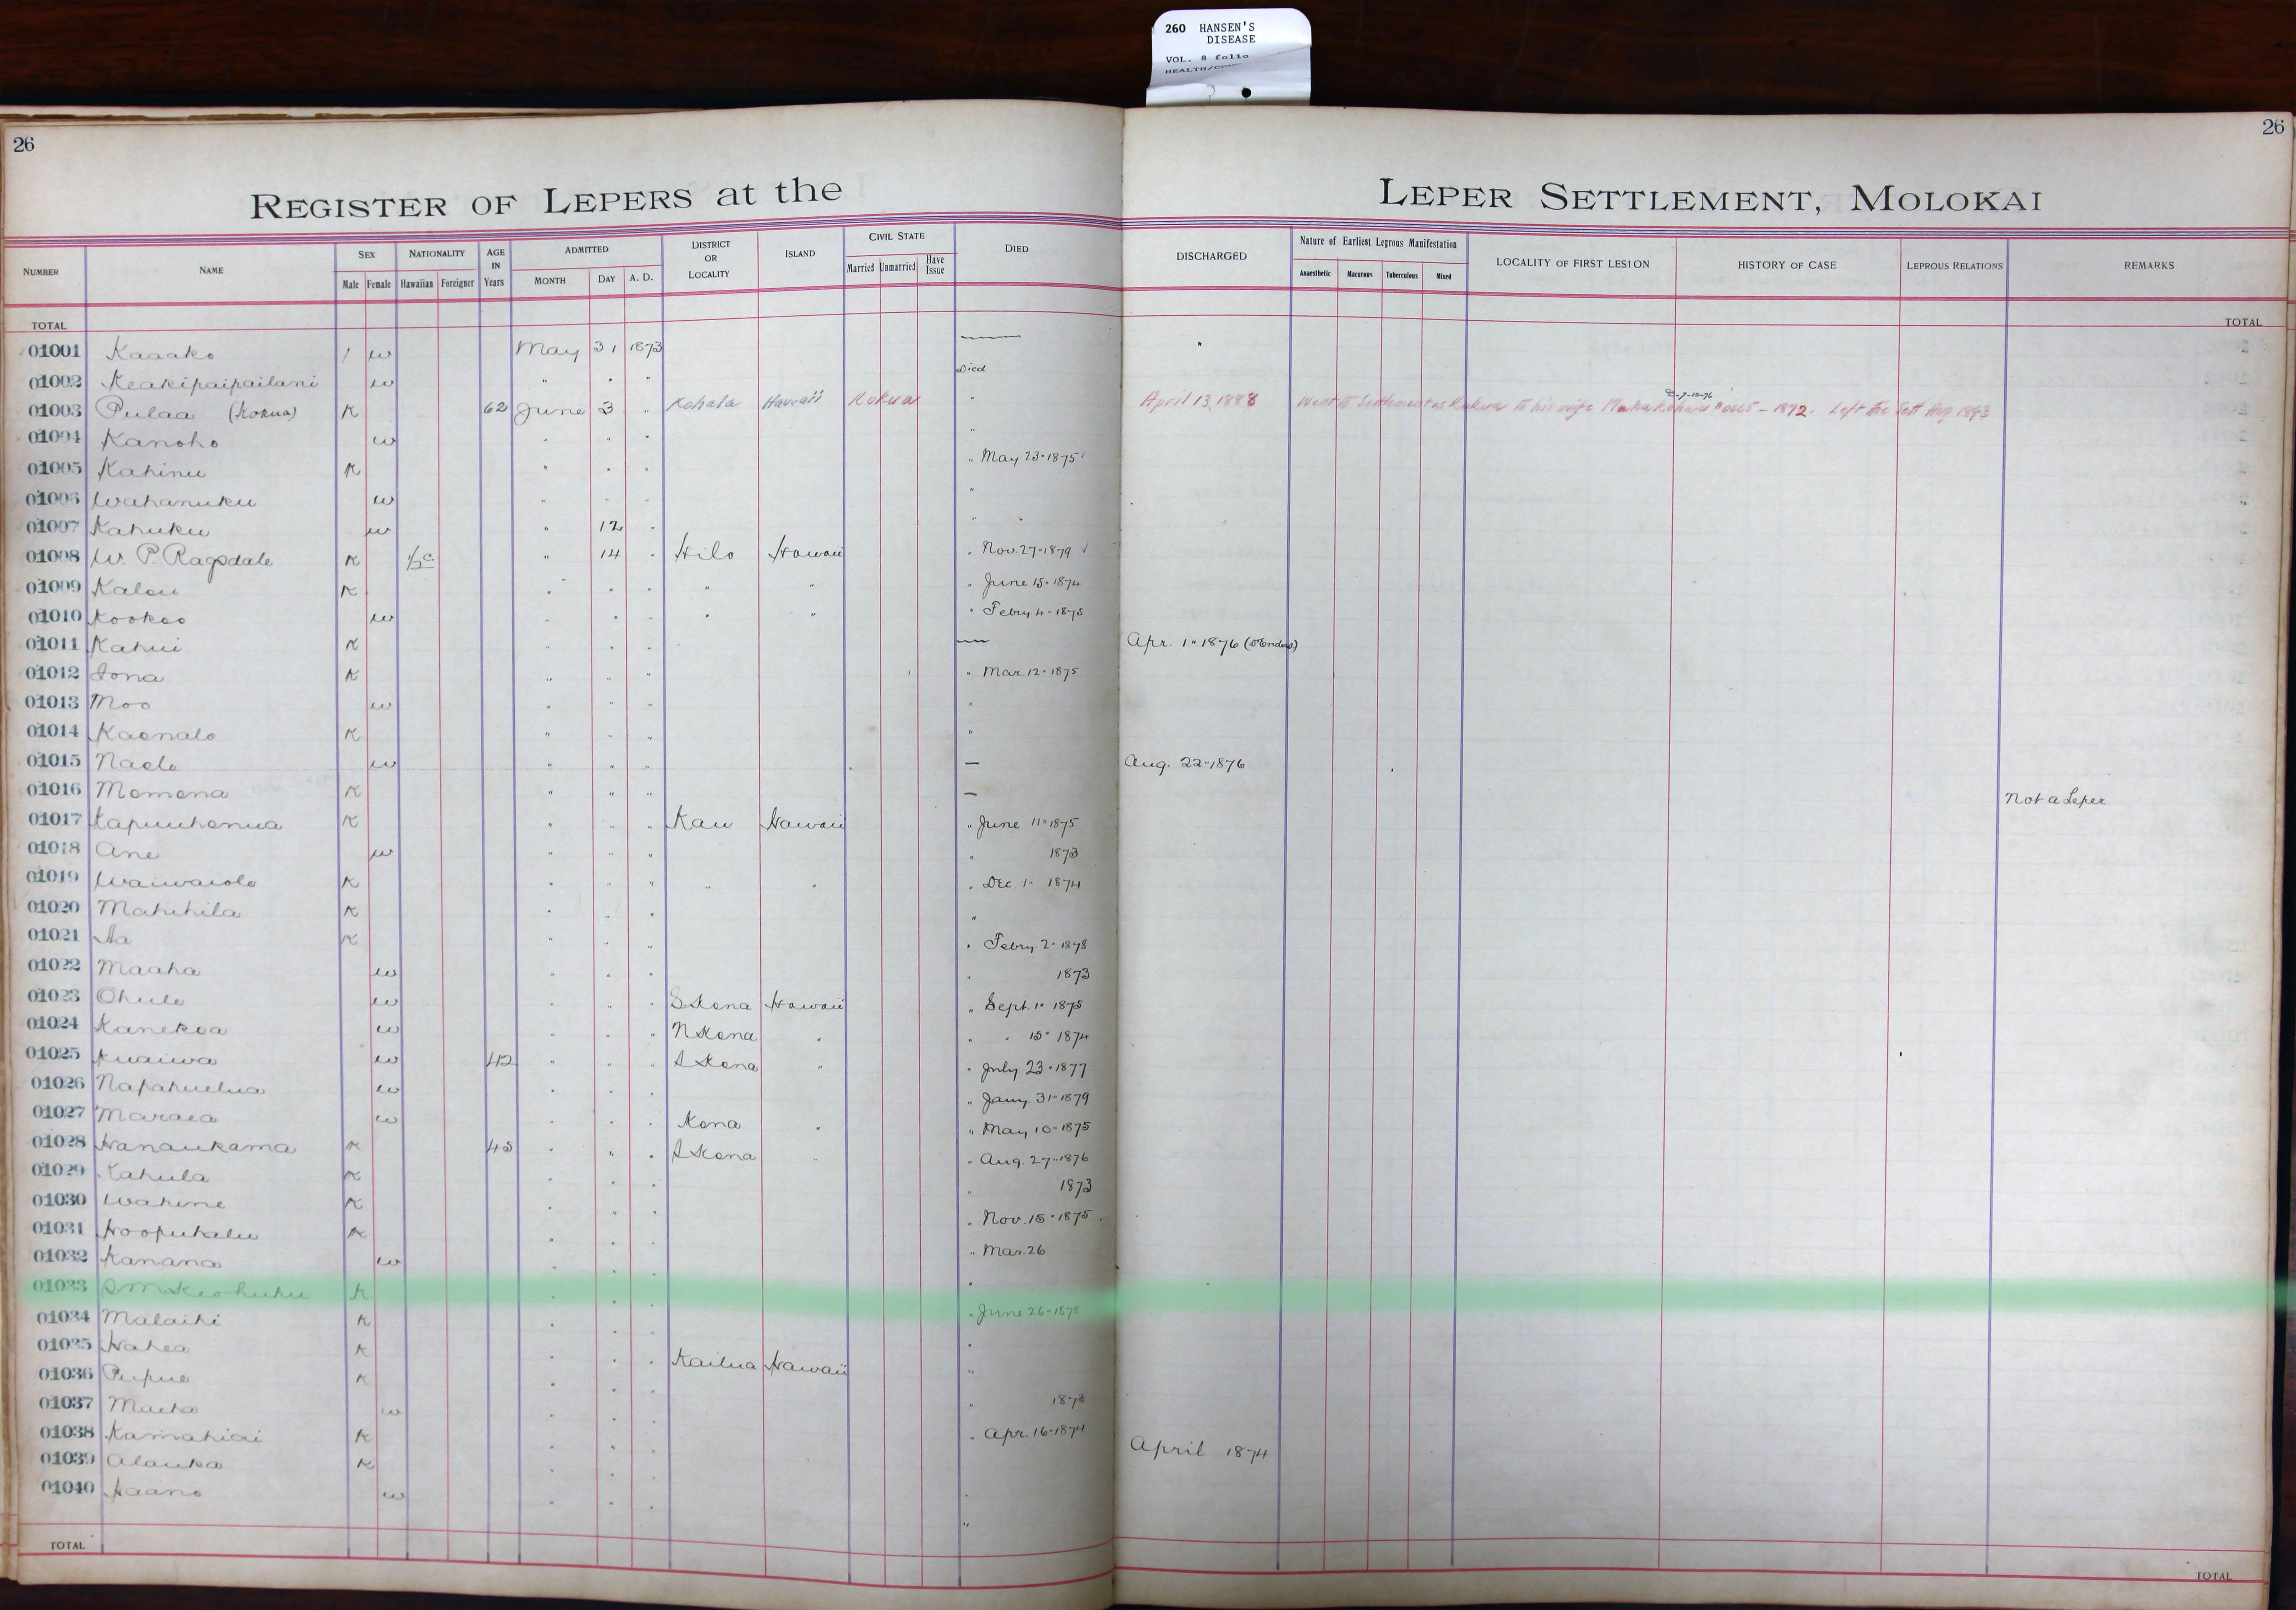 260 HANSEN'S
DISEASE
VOL. 8 folio
HEALTH/COM
26 26
REGISTER OF LEPERS at the LEPER SETTLEMENT, MOLOKAI
NUMBER NAME SEX Male Female NATIONALITY Hawaiian Foreigner AGE IN Years ADMITTED MONTH DAY A. D. DISTRICT OR LOCALITY ISLAND CIVIL STATE Married Unmarried Have Issue DIED DISCHARGED Nature of Earliest Leprous Manifestation Anaesthetic Macurous Tuberculous Mixed LOCALITY OF FIRST LESION HISTORY OF CASE LEPROUS RELATIONS REMARKS
TOTAL TOTAL
01001 Kaaako / w May 31 1873 — "
01002 Keakipaipailani w " " " Died
01003 Pulaa (Kokua) K 62 June 3 " Kohala Hawaii Kokua " April 13, 1888 Went to Settlement as Kokua to his wife - 1872. Left the Sett Aug 1893
D-7-10-76
01004 Kanoho w " " " "
01005 Kahinu K " " " " May 23" 1875
01006 Wahanuku w " " " "
01007 Kahuku w " 12 " "
01008 W. P. Ragsdale K 1/2 c " 14 " Hilo Hawaii " Nov. 27" 1879
01009 Kalou K " " " " " " June 15" 1874
01010 Kookoo w " " " " " " Febry 4 - 1875
01011 Kahui K " " " — Apr. 1" 1876
01012 Iona K " " " " Mar. 12" 1875
01013 Moo w " " " "
01014 Kaonalo K " " " "
01015 Naelo w " " " — Aug. 22-1876
01016 Momona K " " " — Not a Leper
01017 Kapuuhonua K " " " Kau Hawaii " June 11" 1875
01018 Ane w " " " " 1873
01019 Waiwaiole K " " " " " " Dec. 1" 1874
01020 Mahihila K " " " "
01021 Aa K " " " " Febry. 2" 1878
01022 Maaha w " " " " 1873
01023 Ohule w " " " S. Kona Hawaii " Sept. 1" 1875
01024 Kanekoa w " " " N Kona " " " 15" 1874
01025 Kuaiwa w 42 " " " S Kona " " July 23" 1877
01026 Napahuelua w " " " " Jany. 31" 1879
01027 Maraea w " " " Kona " " May 10" 1875
01028 Hanaukama K 45 " " " S Kona " " Aug. 27" 1876
01029 Kahula K " " " " 1873
01030 Wahine K " " " " Nov. 15" 1875
01031 Hoopukalu K " " " " Mar. 26
01032 Kanana w " " " "
01033 S M Keohuhu K " " " " June 26-1878
01034 Malaihi K " " " "
01035 Hahea K " " " Kailua Hawaii "
01036 Pupue K " " " " 1873
01037 Maeha w " " " " Apr. 16" 1874
01038 Kamahiai K " " " April 1874
01039 Alauka K " " " "
01040 Haano w " " " "
TOTAL TOTAL